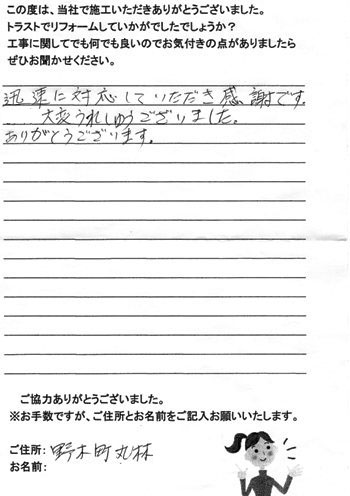 この度は、当社で施工いただきありがとうございました。
トラストでリフォームしていかがでしたでしょうか？
工事に関してでも何でも良いのでお気付きの点がありましたら
ぜひお聞かせください。
迅速に対応していただき感謝です。
大変うれしゅうございました。
ありがとうございます。
ご協力ありがとうございました。
※お手数ですが、ご住所とお名前をご記入お願いいたします。
ご住所：野木町丸林
お名前：